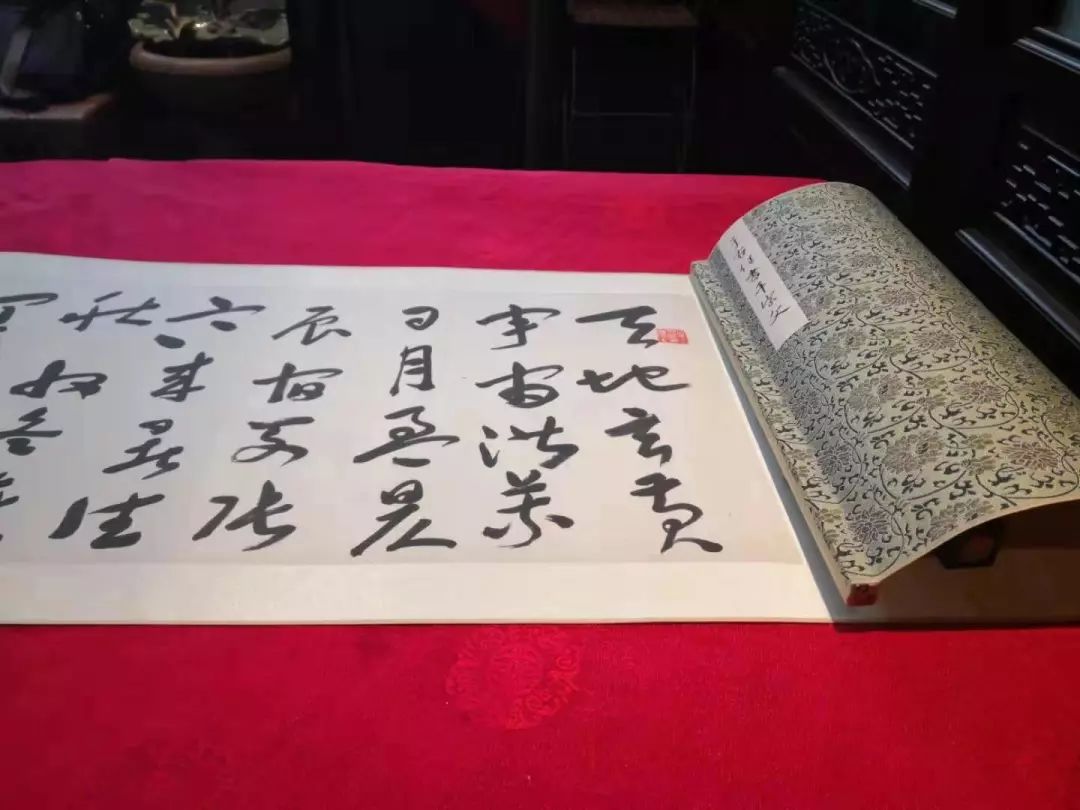 天地玄黄
宇宙洪荒
日月盈昃
辰宿列张
寒来暑往
秋收冬
草书千字文